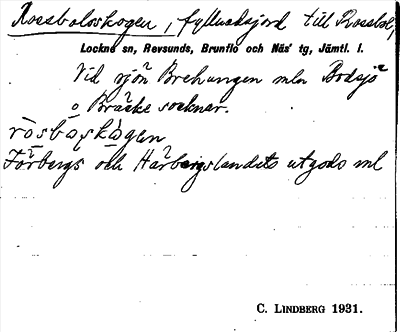 Rossbolsskogen, fyllnadsjord till Rossbol,
Lockne sn, Revsunds, Brunflo och Näs' tg, Jämtl. l.
Vid sjön Brehungen mln Bodsjö
o Bräcke socknar.
rò̄sbó̄skò̀gen
Förbergs och Hårbergslandets utgods ml
C. LINDBERG 1931.